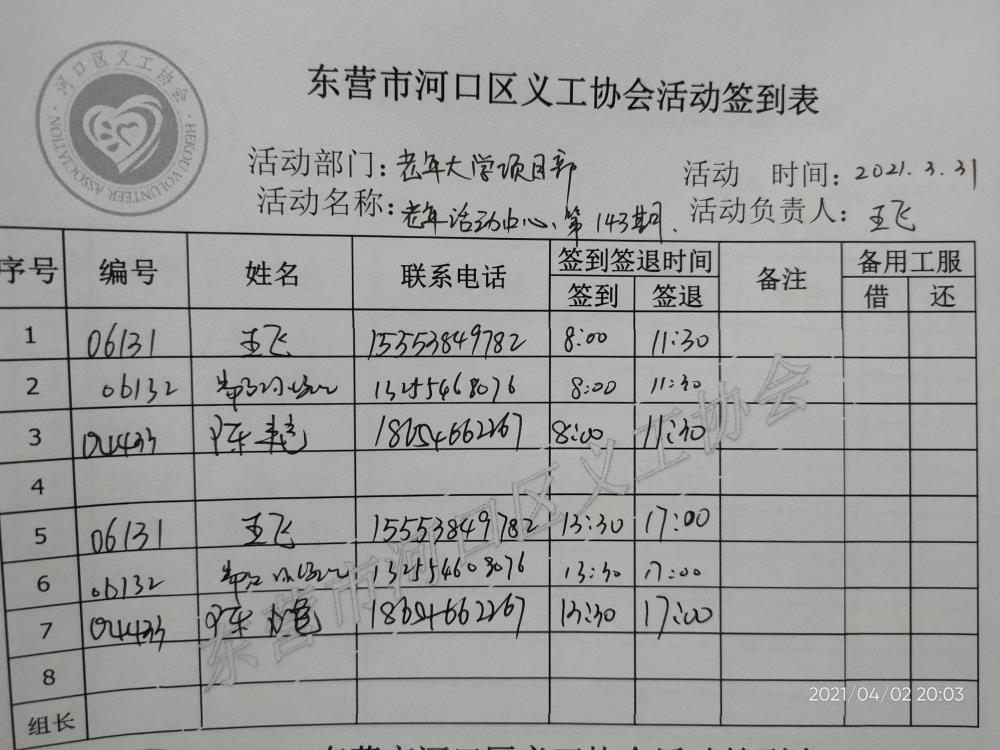 河口区义工协会
HEKOU VOLUNTEER ASSOCIATION
东营市河口区义工协会活动签到表
活动部门：老年大学项目部 活动 时间：2021.3.31
活动名称：老年活动中心、第143期. 活动负责人：王飞
序号 编号 姓名 联系电话 签到签退时间 备注 备用工服
签到 签退 借 还
1 06131 王飞 15553849782 8:00 11:30
2 06132 13255468076 8:00 11:30
3 04433 陈 18654662267 8:00 11:30
4
5 06131 王飞 15553849782 13:30 17:00
6 06132 13255468076 13:30 17:00
7 04433 陈 18654662267 13:30 17:00
8
组长
东营市河口区义工协会
2021/04/02 20:03
东营市河口区义工协会活动签到表